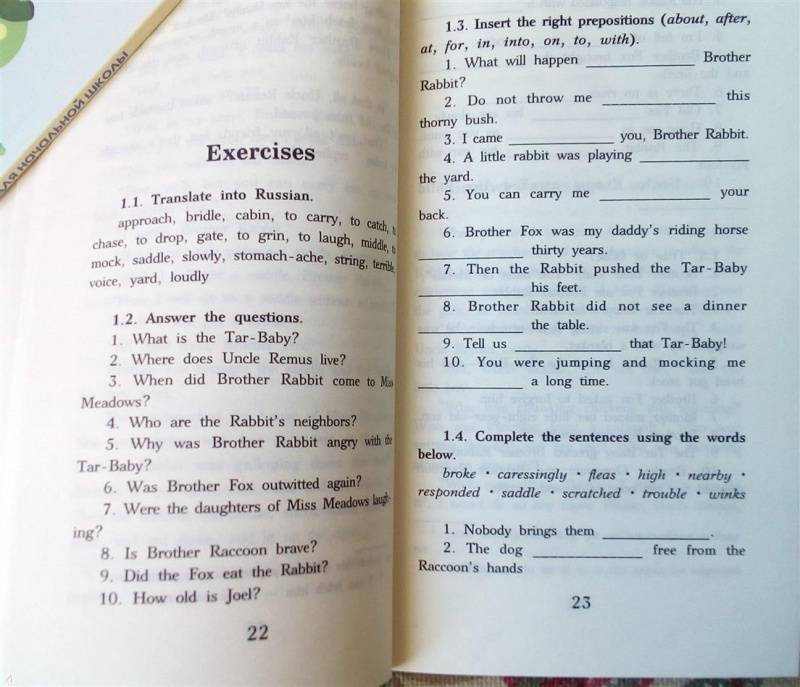 ДЛЯ НАЧАЛЬНОЙ ШКОЛЫ
Exercises
1.1. Translate into Russian.
approach, bridle, cabin, to carry, to catch, to
chase, to drop, gate, to grin, to laugh, middle, to
mock, saddle, slowly, stomach-ache, string, terrible,
voice, yard, loudly
1.2. Answer the questions.
1. What is the Tar-Baby?
2. Where does Uncle Remus live?
3. When did Brother Rabbit come to Miss
Meadows?
4. Who are the Rabbit's neighbors?
5. Why was Brother Rabbit angry with the
Tar-Baby?
6. Was Brother Fox outwitted again?
7. Were the daughters of Miss Meadows laugh-
ing?
8. Is Brother Raccoon brave?
9. Did the Fox eat the Rabbit?
10. How old is Joel?
22
1.3. Insert the right prepositions (about, after,
at, for, in, into, on, to, with).
1. What will happen ____________ Brother
Rabbit?
2. Do not throw me ____________ this
thorny bush.
3. I came ____________ you, Brother Rabbit.
4. A little rabbit was playing ____________
the yard.
5. You can carry me ____________ your
back.
6. Brother Fox was my daddy's riding horse
____________ thirty years.
7. Then the Rabbit pushed the Tar-Baby
____________ his feet.
8. Brother Rabbit did not see a dinner
____________ the table.
9. Tell us ____________ that Tar-Baby!
10. You were jumping and mocking me
____________ a long time.
1.4. Complete the sentences using the words
below.
broke • caressingly • fleas • high • nearby •
responded • saddle • scratched • trouble • winks
1. Nobody brings them ____________.
2. The dog ____________ free from the
Raccoon's hands
23